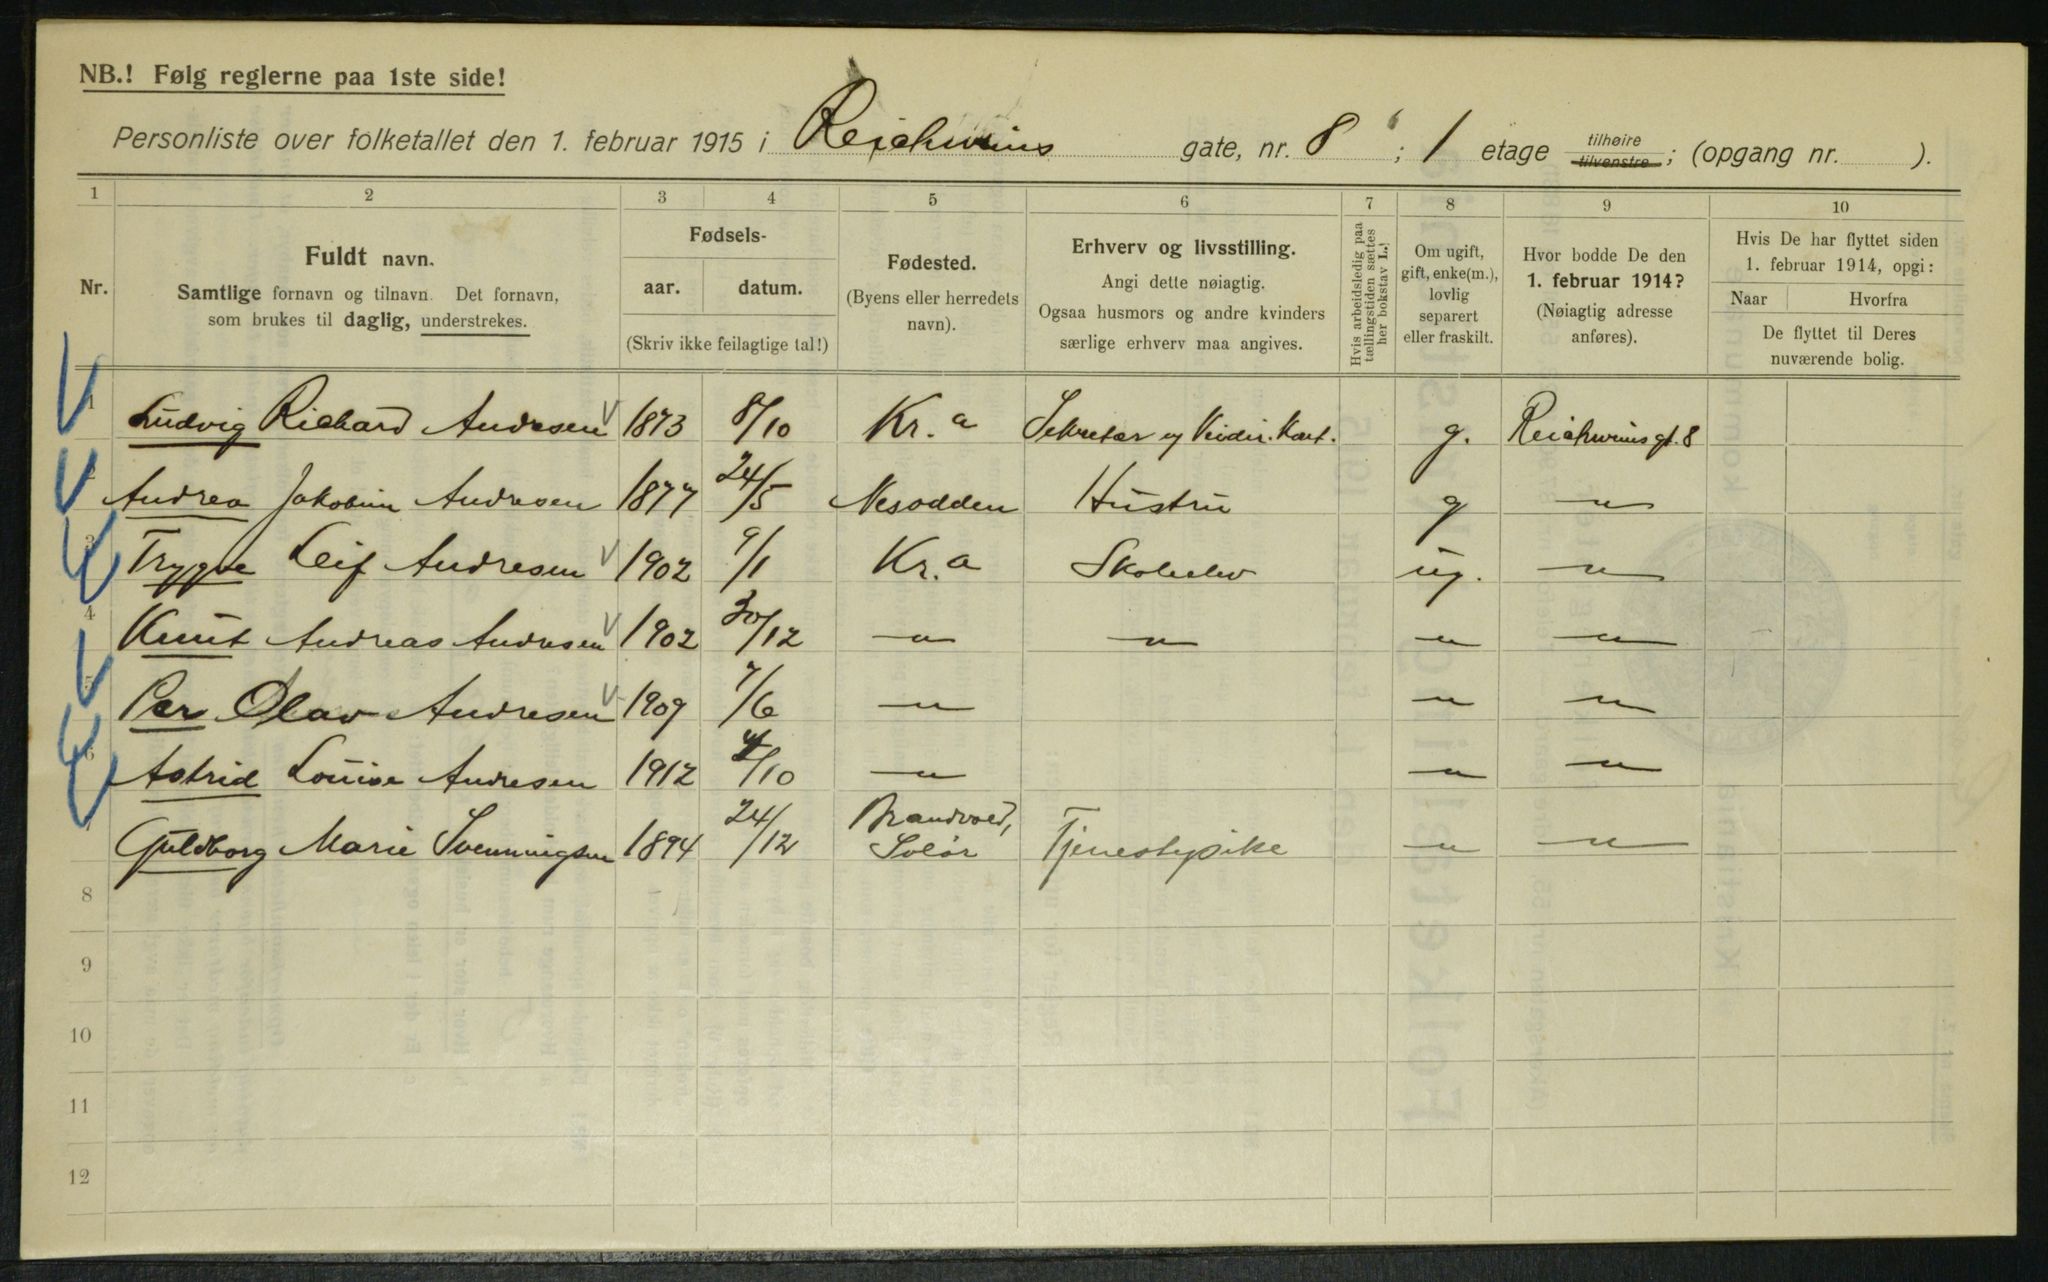 NB.! Følg reglerne paa 1ste side!
Personliste over folketallet den 1. februar 1915 i Reichweins gate, nr. 8 ; 1 etage tilhøire tilvenstre ; (opgang nr. ).
1 2 3 4 5 6 7 8 9 10
Nr.
Fuldt navn.
Samtlige fornavn og tilnavn. Det fornavn,
som brukes til daglig, understrekes.
Fødsels-
aar. datum.
(Skriv ikke feilagtige tal!)
Fødested.
(Byens eller herredets
navn).
Erhverv og livsstilling.
Angi dette nøiagtig.
Ogsaa husmors og andre kvinders
særlige erhverv maa angives.
Hvis arbeidsledig paa
tællingstiden sættes
her bokstav L.!
Om ugift,
gift, enke(m.),
lovlig
separert
eller fraskilt.
Hvor bodde De den
1. februar 1914?
(Nøiagtig adresse
anføres).
Hvis De har flyttet siden
1. februar 1914, opgi:
Naar Hvorfra
De flyttet til Deres
nuværende bolig.
1 Ludvig Richard Andresen 1873 8/10 Kr.a Sekretær g. Reichweins gt. 8
2 Andrea Jakobine Andresen 1877 24/5 Nesodden Hustru g —"—
3 Trygve Leif Andresen 1902 9/1 Kr.a Skoleelev ug. —"—
4 Knut Andreas Andresen 1902 30/12 —"— —"— —"— —"—
5 Per Olav Andresen 1909 7/6 —"— —"— —"—
6 Astrid Louise Andresen 1912 4/10 —"— —"— —"—
7 Guldborg Marie Svenningsen 1894 24/12 Brandvold, Solør Tjenestepike —"— —"—
8
9
10
11
12